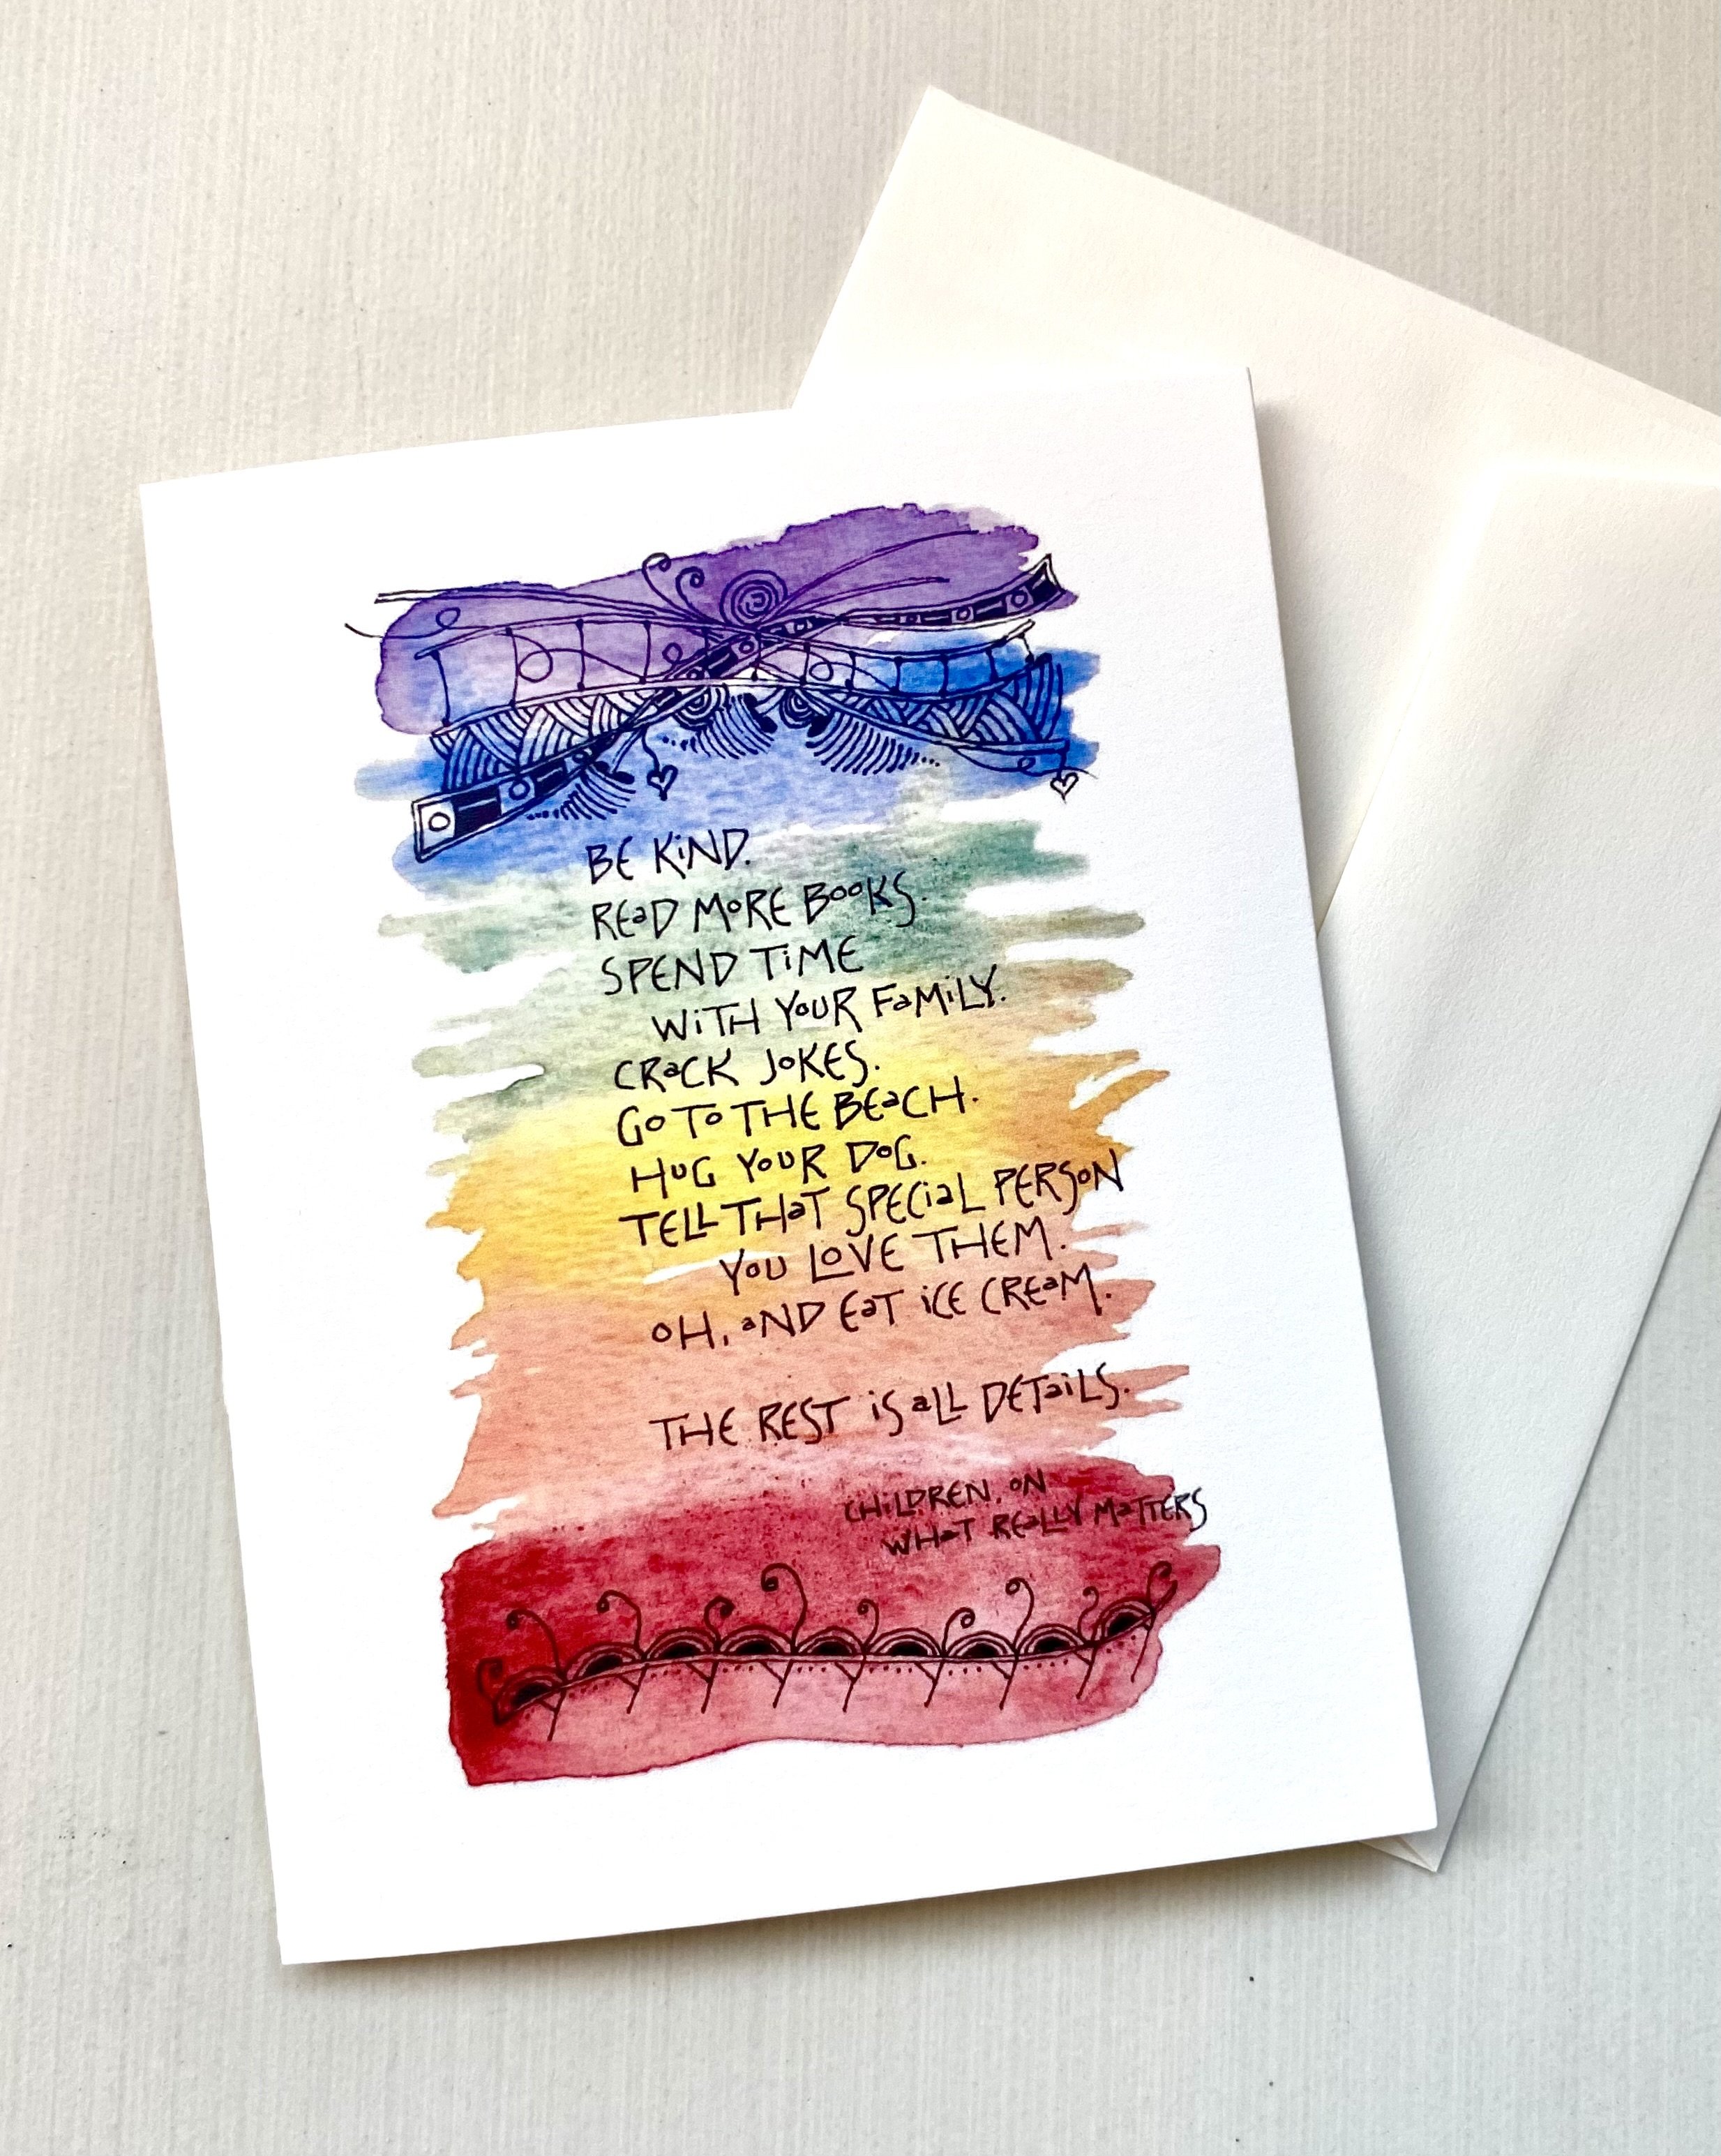 BE KiND.
READ MoRE BooKS.
SPEND TiME
WiTH YoUR FaMiLY.
CRaCK JoKES.
Go To THE BEaCH.
HuG YouR DoG.
TELL THaT SPECiaL PERSoN
You LoVE THEM.
oH, aND EaT iCE CREaM.
THE REST iS aLL DETaiLS.
CHiLDREN, oN
WHaT REaLLY MaTTERS